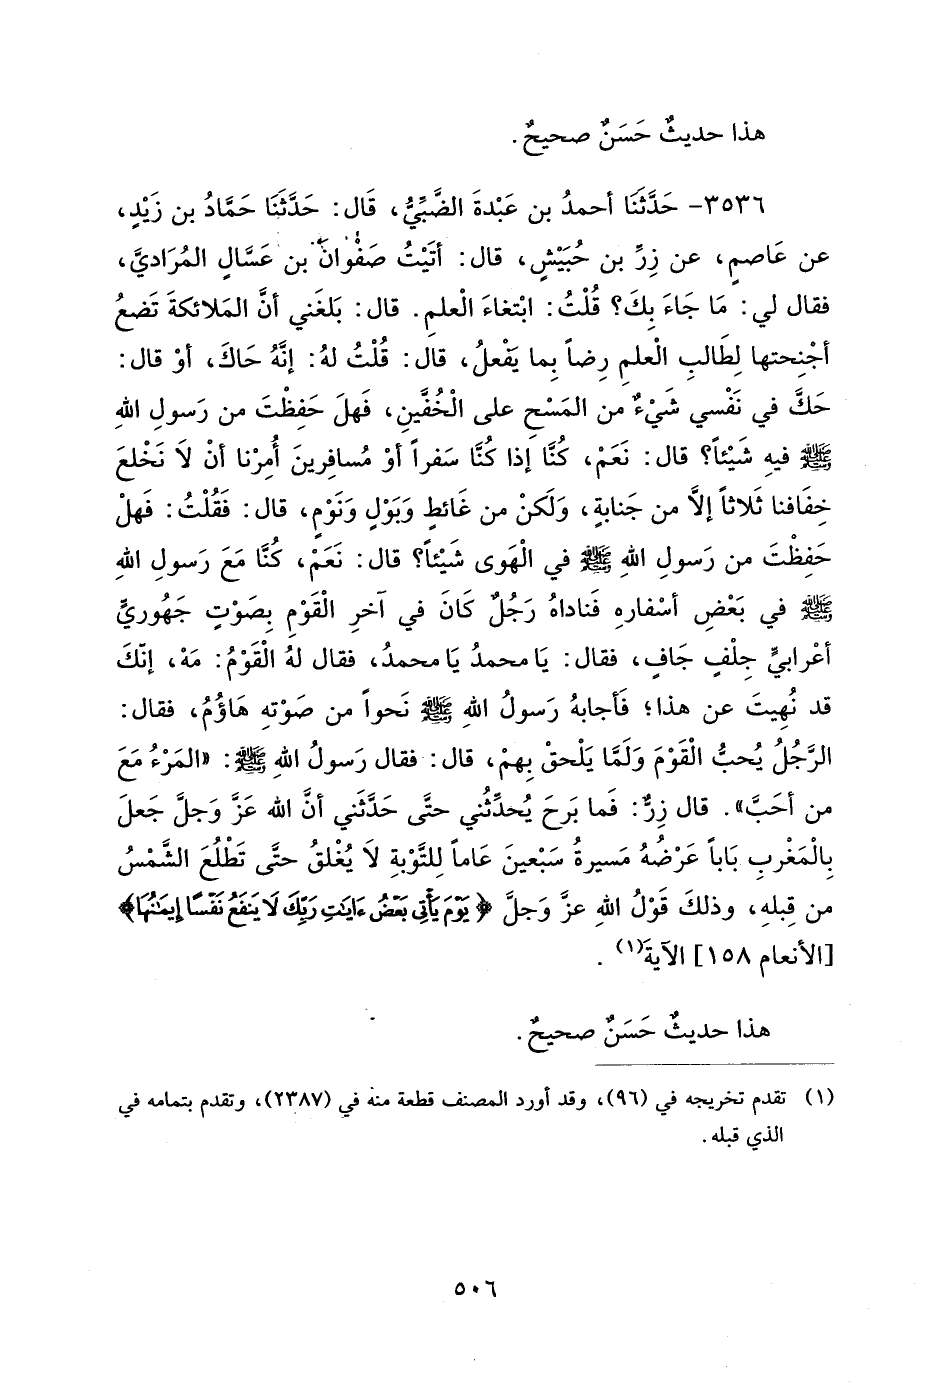 هذا حديثٌ حَسَنٌ صحيحٌ.
٣٥٣٦- حَدَّثَنَا أحمدُ بن عَبْدةَ الضَّبِّيُّ، قَال: حَدَّثَنَا حَمَّادُ بن زَيْدٍ،
عن عَاصمٍ، عن زِرِّ بن حُبَيْشٍ، قال: أتَيْتُ صَفْوانَ بن عَسَّالٍ المُرَاديَّ،
فقال لي: مَا جَاءَ بِكَ؟ قُلْتُ: ابْتغاءَ الْعلمِ. قال: بَلغَني أنَّ المَلائكةَ تَضعُ
أجْنِحتها لِطَالبِ الْعلمِ رِضاً بما يَفْعلُ، قال: قُلْتُ لهُ: إنَّهُ حَاكَ، أوْ قال:
حَكَّ في نَفْسي شَيْءٌ من المَسْحِ على الْخُفَّينِ، فَهلَ حَفِظْتَ من رَسولِ اللهِ
ﷺ فيهِ شَيْئاً؟ قال: نَعَمْ، كُنَّا إذا كُنَّا سَفراً أوْ مُسافِرينَ أُمِرْنا أنْ لاَ نَخْلعَ
خِفَافنا ثَلاثاً إلاَّ من جَنابةٍ، وَلَكنْ من غَائطٍ وَبَوْلٍ ونَوْمٍ، قال: فَقُلْتُ: فَهلْ
حَفِظْتَ من رَسولِ اللهِ ﷺ في الْهَوى شَيْئاً؟ قال: نَعَمْ، كُنَّا مَعَ رَسولِ اللهِ
ﷺ في بَعْضِ أسْفارهِ فَناداهُ رَجُلٌ كَانَ في آخرِ الْقَوْمِ بِصَوْتٍ جَهُوريٍّ
أعْرابيٌّ جِلْفٍ جَافٍ، فقال: يَا محمدُ يَا محمدُ، فقال لهُ الْقَوْمُ: مَهْ، إنّكَ
قد نُهِيتَ عن هذا؛ فَأجابهُ رَسولُ اللهِ ﷺ نَحواً من صَوْتهِ هَاؤُمُ، فقال:
الرَّجُلُ يُحبُّ الْقَوْمَ وَلَمَّا يَلْحقْ بِهمْ، قال: فقال رَسولُ اللهِ ﷺ: «المَرْءُ مَعَ
من أحَبَّ». قال زِرٌّ: فَما بَرحَ يُحدِّثُني حتَّى حَدَّثَني أنَّ الله عَزَّ وَجلَّ جَعلَ
بِالْمَغْربِ بَاباً عَرْضُهُ مَسيرةُ سَبْعينَ عَاماً لِلتَّوْبةِ لاَ يُغْلقُ حتَّى تَطْلُعَ الشَّمْسُ
من قِبلهِ، وذلكَ قَوْلُ اللهِ عزَّ وَجلَّ ﴿يَوْمَ يَأْتِي بَعْضُ ءَايَٰتِ رَبِّكَ لَا يَنفَعُ نَفْسًا إِيمَٰنُهَا﴾
[الأنعام ١٥٨] الآيةَ(١).
هذا حديثٌ حَسَنٌ صحيحٌ.
(١) تقدم تخريجه في (٩٦)، وقد أورد المصنف قطعة منه في (٢٣٨٧)، وتقدم بتمامه في
الذي قبله.
٥٠٦